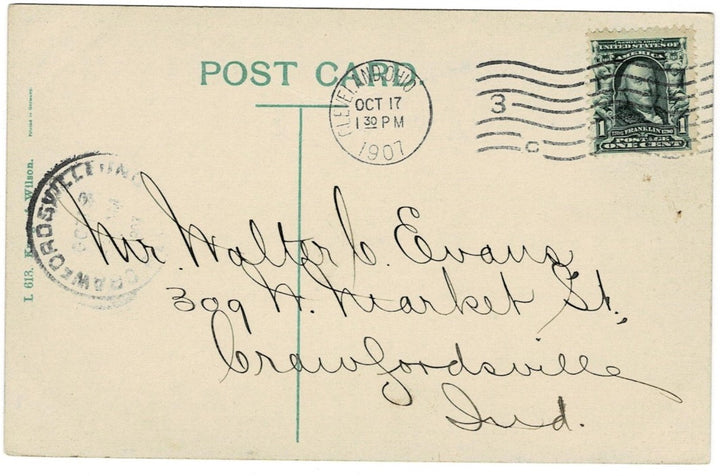 POST CARD
CLEVELAND, OHIO
OCT 17
1 30 PM
1907
3
C
SERIES 1902
UNITED STATES OF
AMERICA
1706 FRANKLIN 1790
1 POSTAGE 1
ONE CENT
CRAWFORDSVILLE IND.
Mr. Walter C. Evans
309 W. Market St.,
Crawfordsville
Ind.
L 613. Wilson.
Printed in Germany.